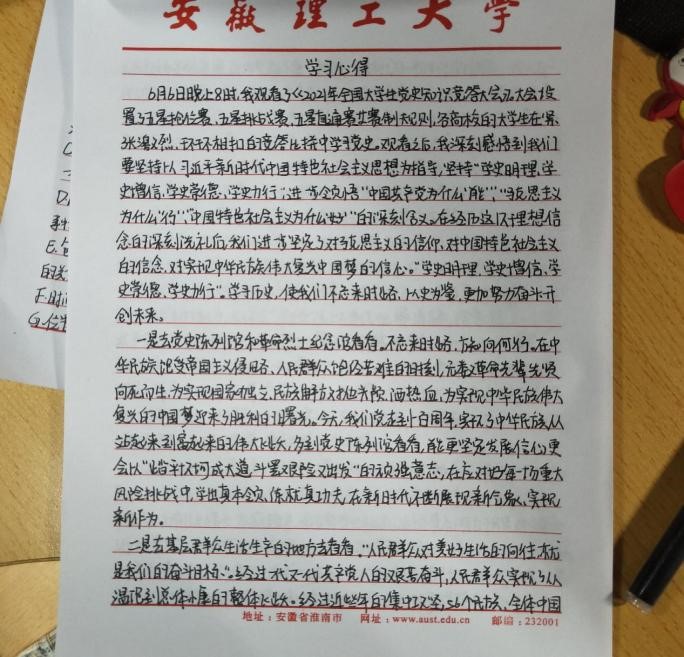 安徽理工大学
学习心得
6月6日晚上8时,我观看了《2021年全国大学生党史知识竞答大会》。大会设
置了五星抢位赛,五星挑战赛,五星直通赛等赛制规则,各高校的大学生在紧
张激烈,环环相扣的竞答比拼中学习党史。观看之后,我深刻感悟到我们
要坚持以习近平新时代中国特色社会主义思想为指导,坚持"学史明理,学
史增信,学史崇德,学史力行",进一步领悟"中国共产党为什么'能'","马克思主义
为什么'行'","中国特色社会主义为什么'好'"的深刻含义。在经历这次理想信
念的深刻洗礼后,我们进一步坚定了对马克思主义的信仰,对中国特色社会主义
的信念,对实现中华民族伟大复兴中国梦的信心。"学史明理,学史增信,学
史崇德,学史力行"。学习历史,使我们不忘来时路,以史为鉴,更加努力奋斗开
创未来。
一是去党史陈列馆和革命烈士纪念馆看看,不忘来时路,方知向何行。在中
华民族饱受帝国主义侵略,人民群众饱经苦难的时刻,无数革命先辈先贤
向死而生,为实现国家独立,民族解放抛头颅,洒热血,为实现中华民族伟大
复兴的中国梦迎来了胜利的曙光。今天,我们党走到一百周年,实现了中华民族从
站起来到富起来的伟大飞跃,多到党史陈列馆看看,能更坚定发展信心,更
会以"踏平坎坷成大道,斗罢艰险又出发"的顽强意志,在应对好每一场重大
风险挑战中,学出真本领,练就真功夫,在新时代不断展现新气象,实现
新作为。
二是去基层群众生活生产的地方去看看。"人民群众对美好生活的向往就
是我们的奋斗目标"。经过一代又一代共产党人的艰苦奋斗,人民群众实现了从
温饱到总体小康的整体飞跃。经过近些年的集中攻坚,56个民族,全体中国
地址:安徽省淮南市 网址:www.aust.edu.cn 邮编:232001
D.
E.
F.时
G.